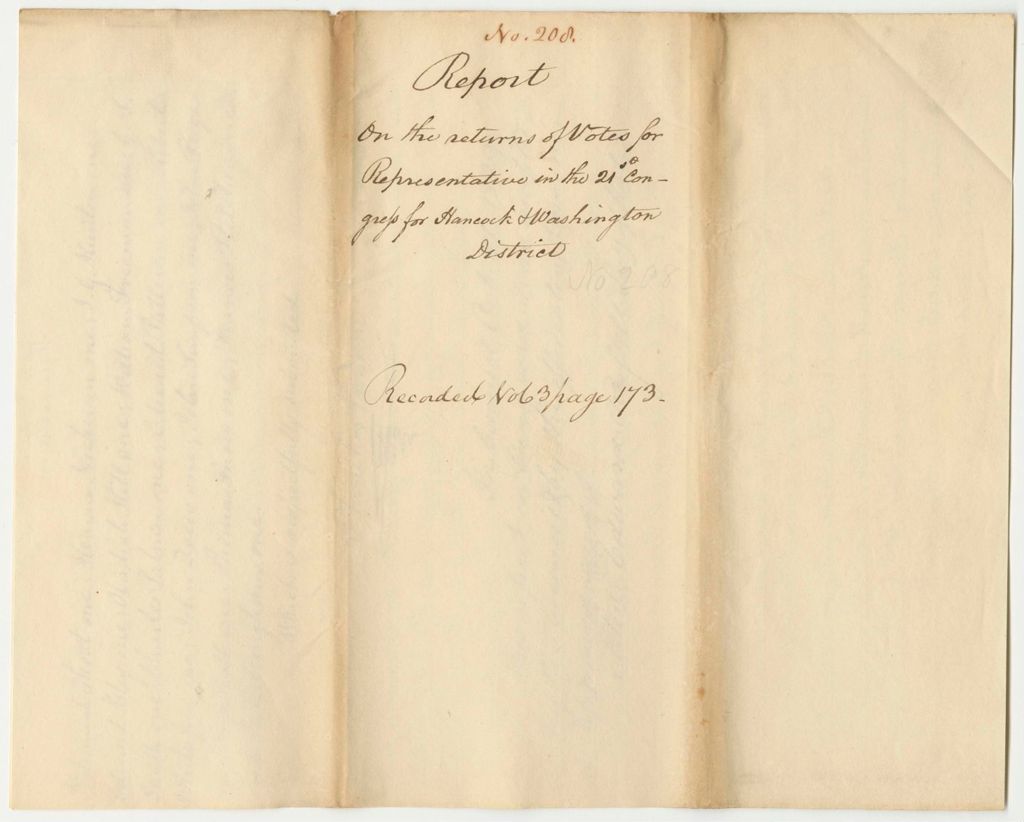 No. 208.
Report
On the returns of Votes for
Representative in the 21st Con-
gress for Hancock & Washington
District
No 208
Recorded Vol 3 page 173.